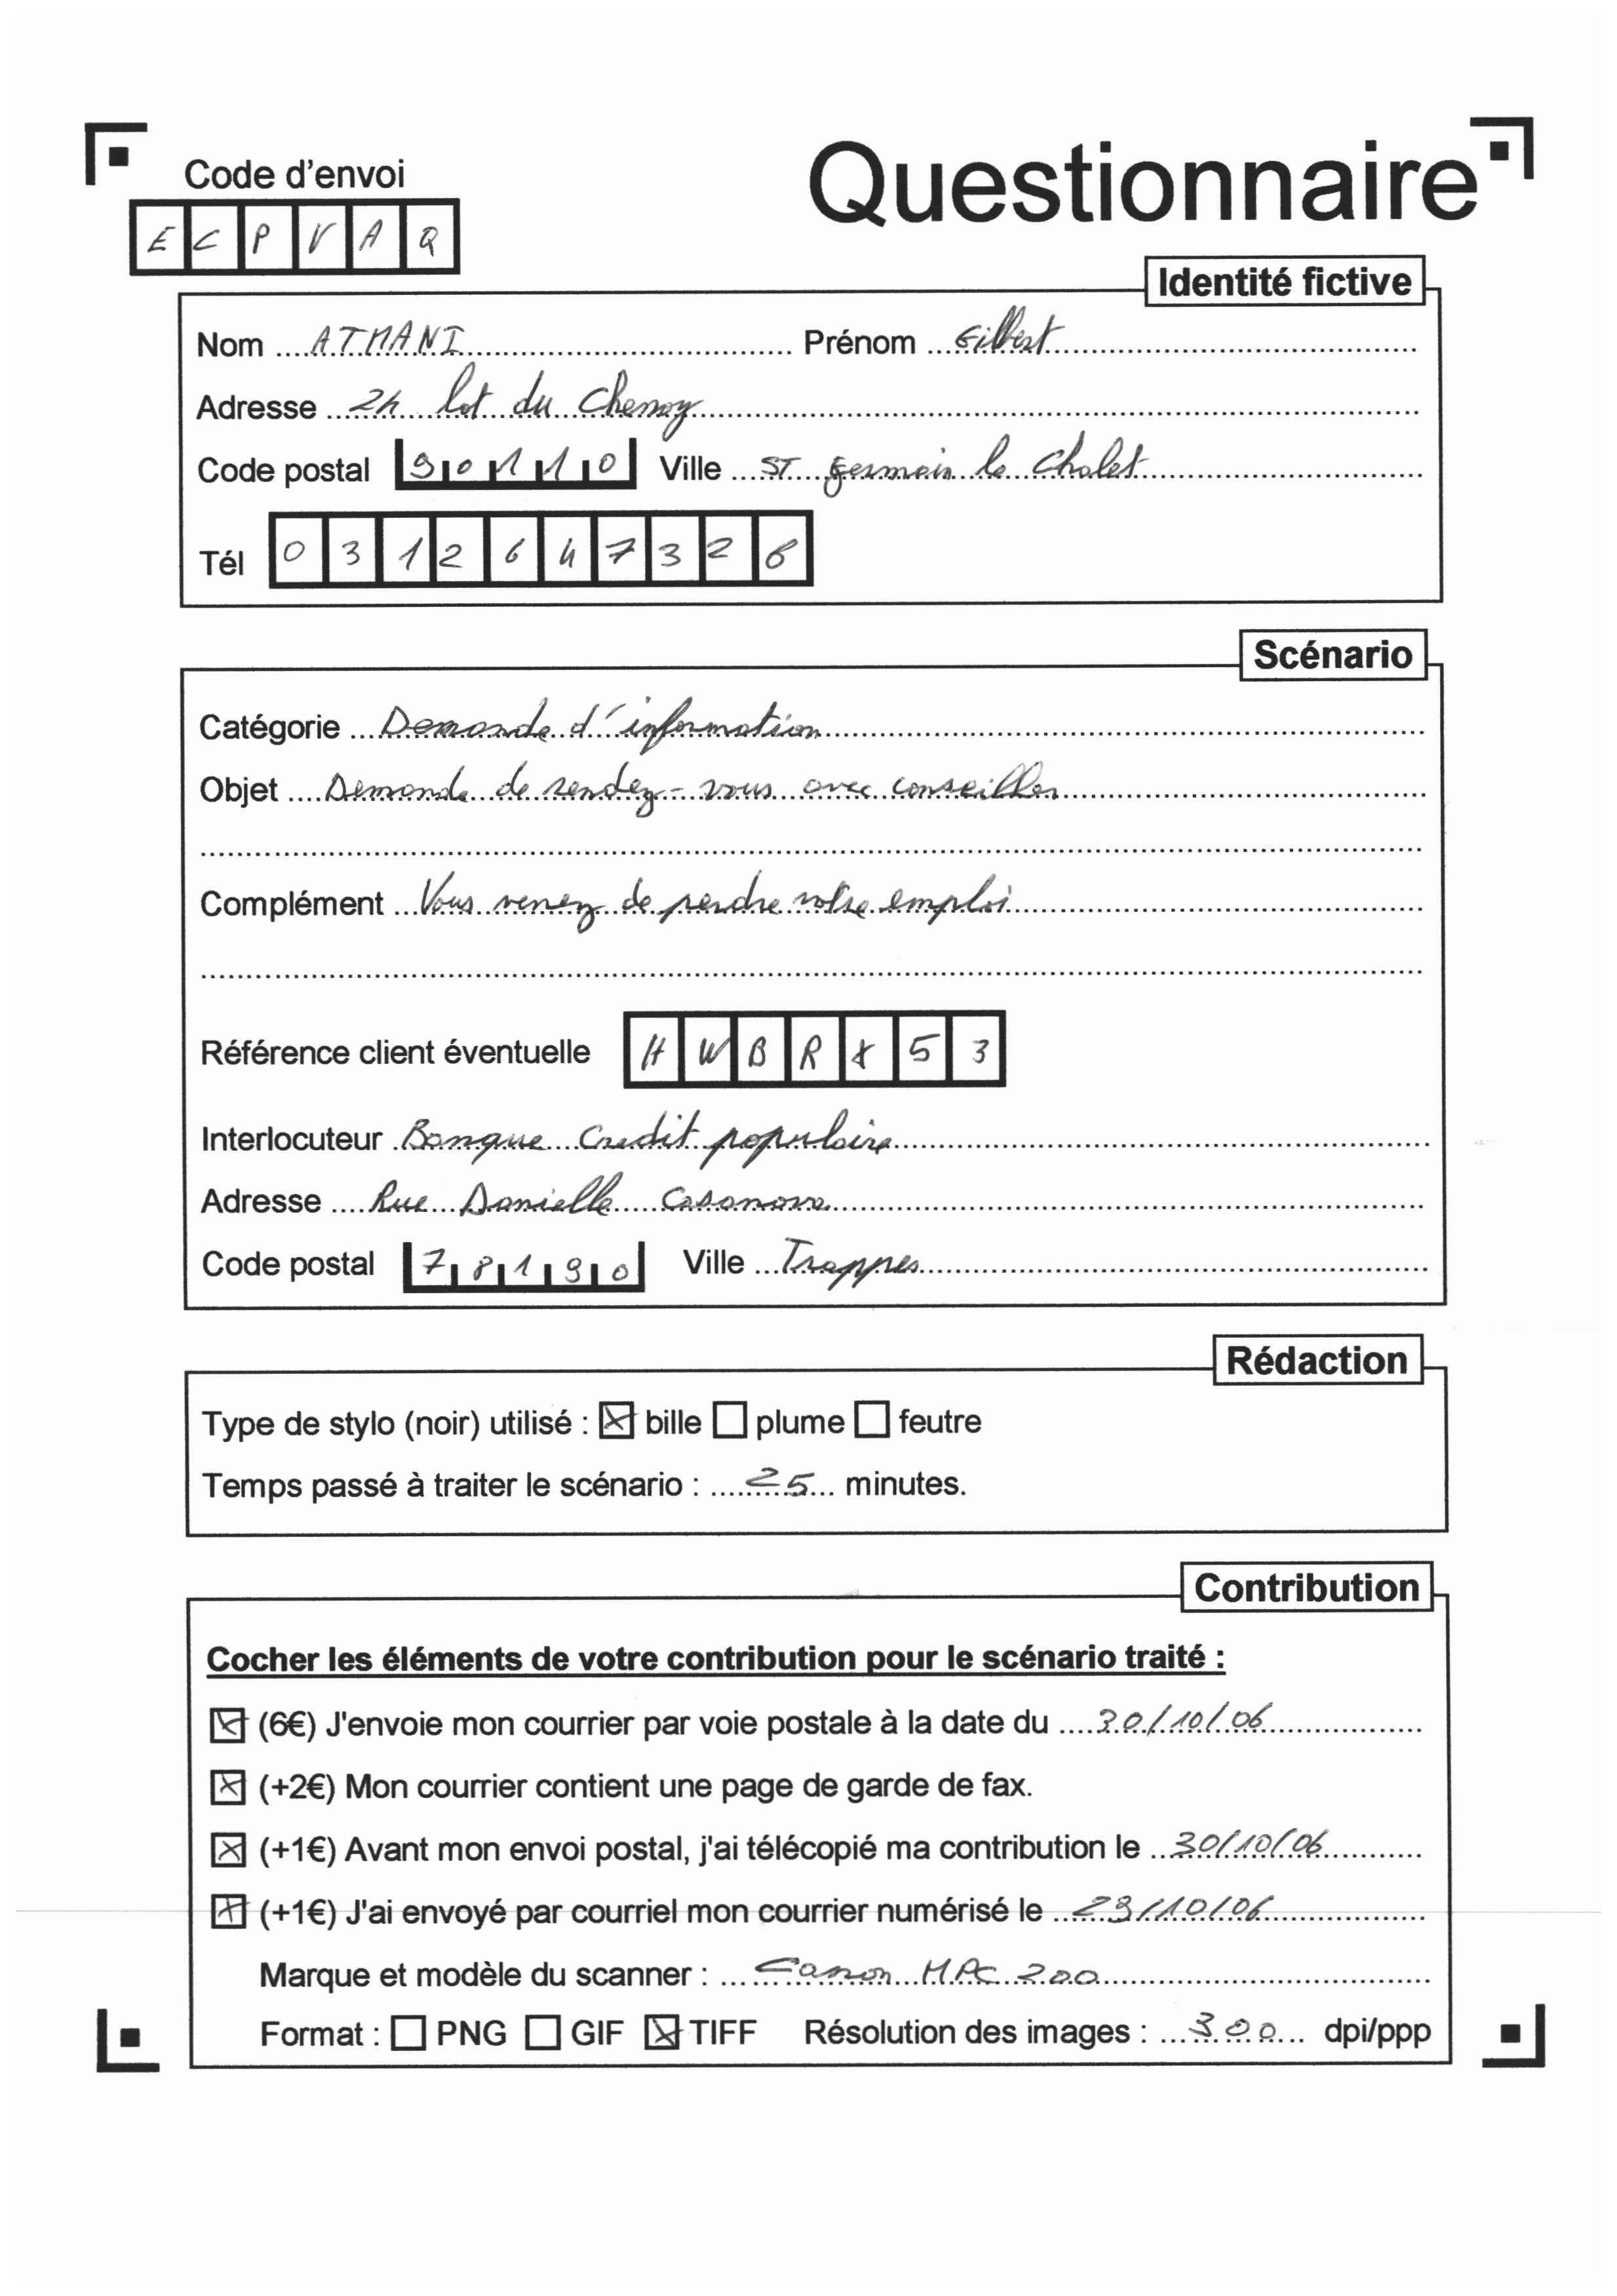 Code d'envoi
Questionnaire
E C P V A Q
Identité fictive
Nom ATMANI Prénom Gilbert
Adresse 24 lot du Chenoy
Code postal 90110 Ville ST germain le Chalet
Tél 0312647326
Scénario
Catégorie Demande d'information
Objet Demande de rendez-vous avec conseiller
Complément Vous venez de perdre votre emploi
Référence client éventuelle H W B R X 5 3
Interlocuteur Banque Credit populaire
Adresse Rue Danielle Casanova
Code postal 78190 Ville Trappes
Rédaction
Type de stylo (noir) utilisé : bille plume feutre
Temps passé à traiter le scénario : 25 minutes.
Contribution
Cocher les éléments de votre contribution pour le scénario traité :
(6€) J'envoie mon courrier par voie postale à la date du 30/10/06
(+2€) Mon courrier contient une page de garde de fax.
(+1€) Avant mon envoi postal, j'ai télécopié ma contribution le 30/10/06
(+1€) J'ai envoyé par courriel mon courrier numérisé le 29/10/06
Marque et modèle du scanner : Canon MPC 200
Format : PNG GIF TIFF Résolution des images : 300 dpi/ppp